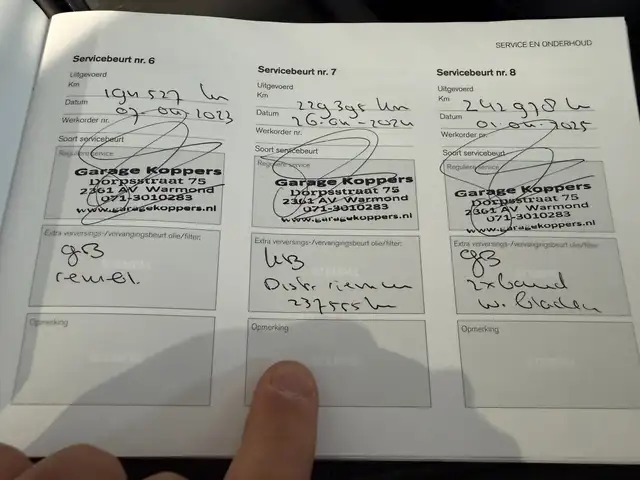 SERVICE EN ONDERHOUD
Servicebeurt nr. 6
Uitgevoerd
Km 194527 km
Datum 07-04-2023
Werkorder nr.
Soort servicebeurt
Reguliere service
Garage Koppers
Dorpsstraat 75
2361 AV Warmond
071-3010283
www.garagekoppers.nl
Extra verversings-/vervangingsbeurt olie/filter:
gB
remol.
Opmerking
Servicebeurt nr. 7
Uitgevoerd
Km 229395 km
Datum 26-04-2024
Werkorder nr.
Soort servicebeurt
Reguliere service
Garage Koppers
Dorpsstraat 75
2361 AV Warmond
071-3010283
www.garagekoppers.nl
Extra verversings-/vervangingsbeurt olie/filter:
kB
Distr. riemen
237555 km
Opmerking
Servicebeurt nr. 8
Uitgevoerd
Km 242978 km
Datum 01-04-2025
Werkorder nr.
Soort servicebeurt
Reguliere service
Garage Koppers
Dorpsstraat 75
2361 AV Warmond
071-3010283
www.garagekoppers.nl
Extra verversings-/vervangingsbeurt olie/filter:
gB
2x band
w. bladen
Opmerking